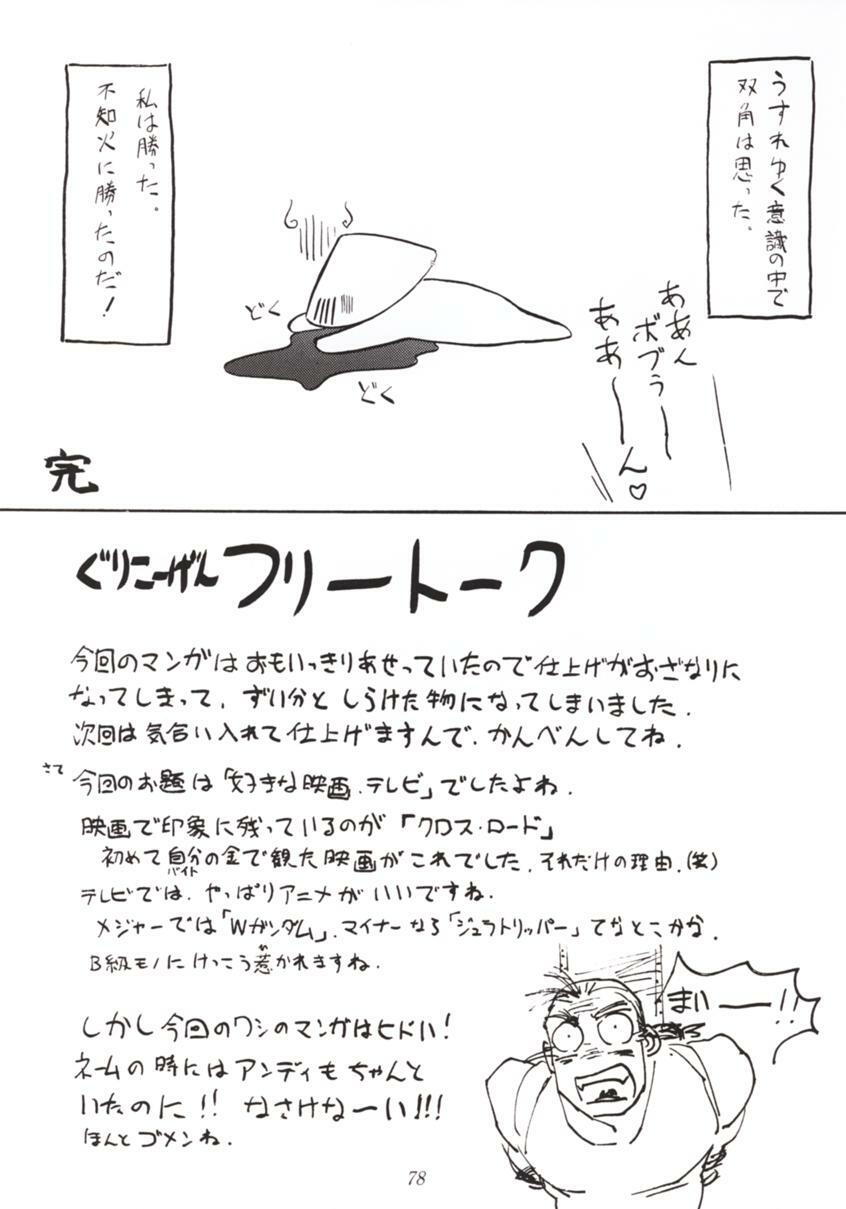 うすれゆく意識の中で
双角は思った。
ああん
ボブぅ——
ああ——ん♡
どく
どく
私は勝った。
不知火に勝ったのだ!
完
ぐりこーげん フリートーク
今回のマンガはおもいっきりあせっていたので仕上げがおざなりに
なってしまって、ずい分としらけた物になってしまいました.
次回は気合い入れて仕上げますんで、かんべんしてね.
さて
今回のお題は「好きな映画、テレビ」でしたよね.
映画で印象に残っているのが「クロス・ロード」
初めて自分の金で観た映画がこれでした.それだけの理由.(笑)
バイト
テレビでは、やっぱりアニメがいいですね.
メジャーでは「Wガンダム」、マイナーなら「ジュラトリッパー」てなとこかな.
B級モノにけっこう惹かれますね.
ひ
しかし今回のワシのマンガはヒドい!
ネームの時にはアンディもちゃんと
いたのに!! なさけな〜い!!!
ほんとゴメンね.
まい——!!
78